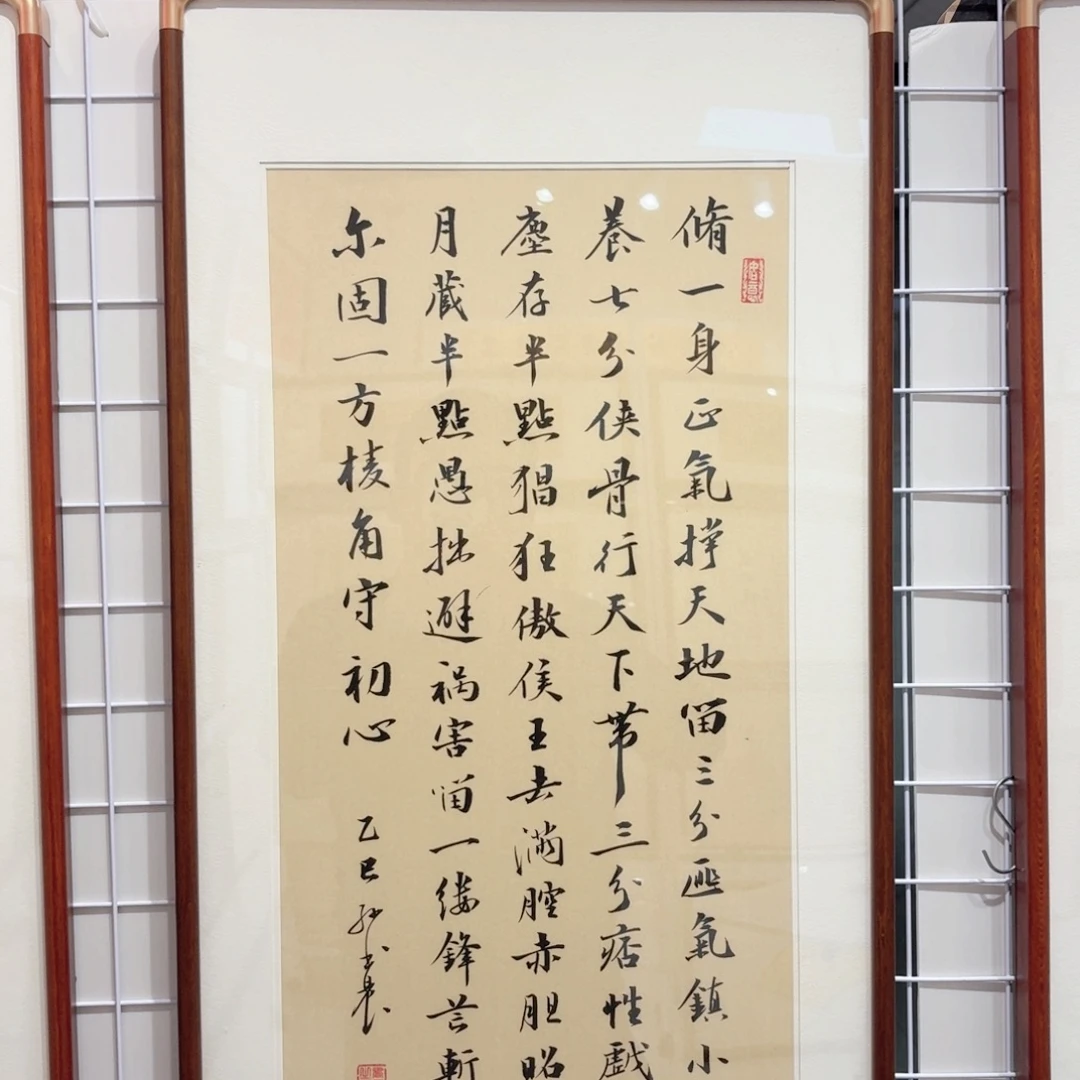 脩一身正氣撑天地留三分匪氣鎮小
養七分侠骨行天下帶三分痞性戲
塵存半點猖狂傲侯王去满腔赤胆昭
月藏半點愚拙避祸害留一缕鋒芒斬
尔固一方棱角守初心
乙巳